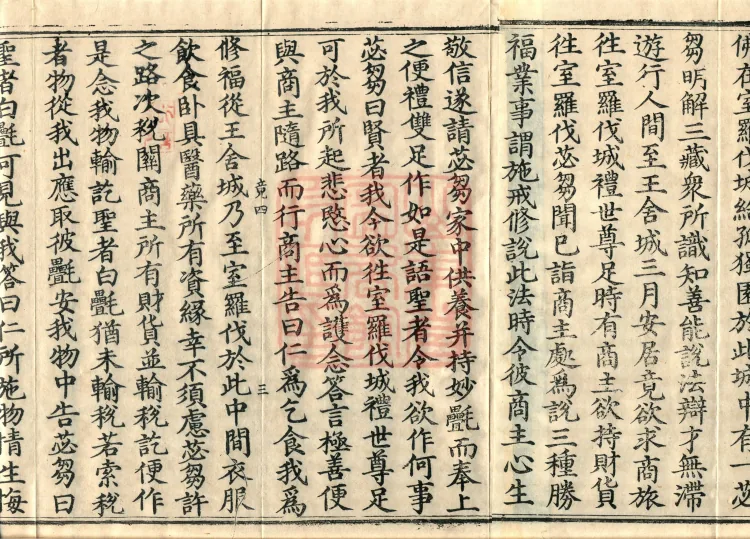 佛在室羅伐城給孤獨園於此城中有一苾
芻明解三藏衆所識知善能說法辯才無滯
遊行人間至王舍城三月安居竟欲求商旅
往室羅伐城禮世尊足時有商主欲持財貨
往室羅伐苾芻聞已詣商主處爲說三種勝
福業事謂施戒修說此法時令彼商主心生
敬信遂請苾芻家中供養并持妙㲲而奉上
之便禮雙足作如是語聖者今我欲作何事
苾芻曰賢者我今欲往室羅伐城禮世尊足
可於我所起悲愍心而爲護念答言極善便
與商主隨路而行商主告曰仁爲乞食我爲
竟四
三
修福從王舍城乃至室羅伐於此中間衣服
飲食卧具醫藥所有資緣幸不須慮苾芻許
之路次稅關商主所有財貨並輸稅訖便作
是念我物輸訖聖者白㲲猶未輸稅若索稅
者物從我出應取彼㲲安我物中告苾芻曰
聖者白㲲可見與我答曰仁所施物情生悔